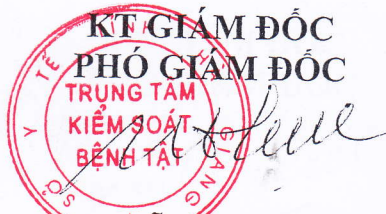 KT GIÁM ĐỐC
PHÓ GIÁM ĐỐC
TRUNG TÂM
KIỂM SOÁT
BỆNH TẬT
SỞ Y TẾ
GIANG